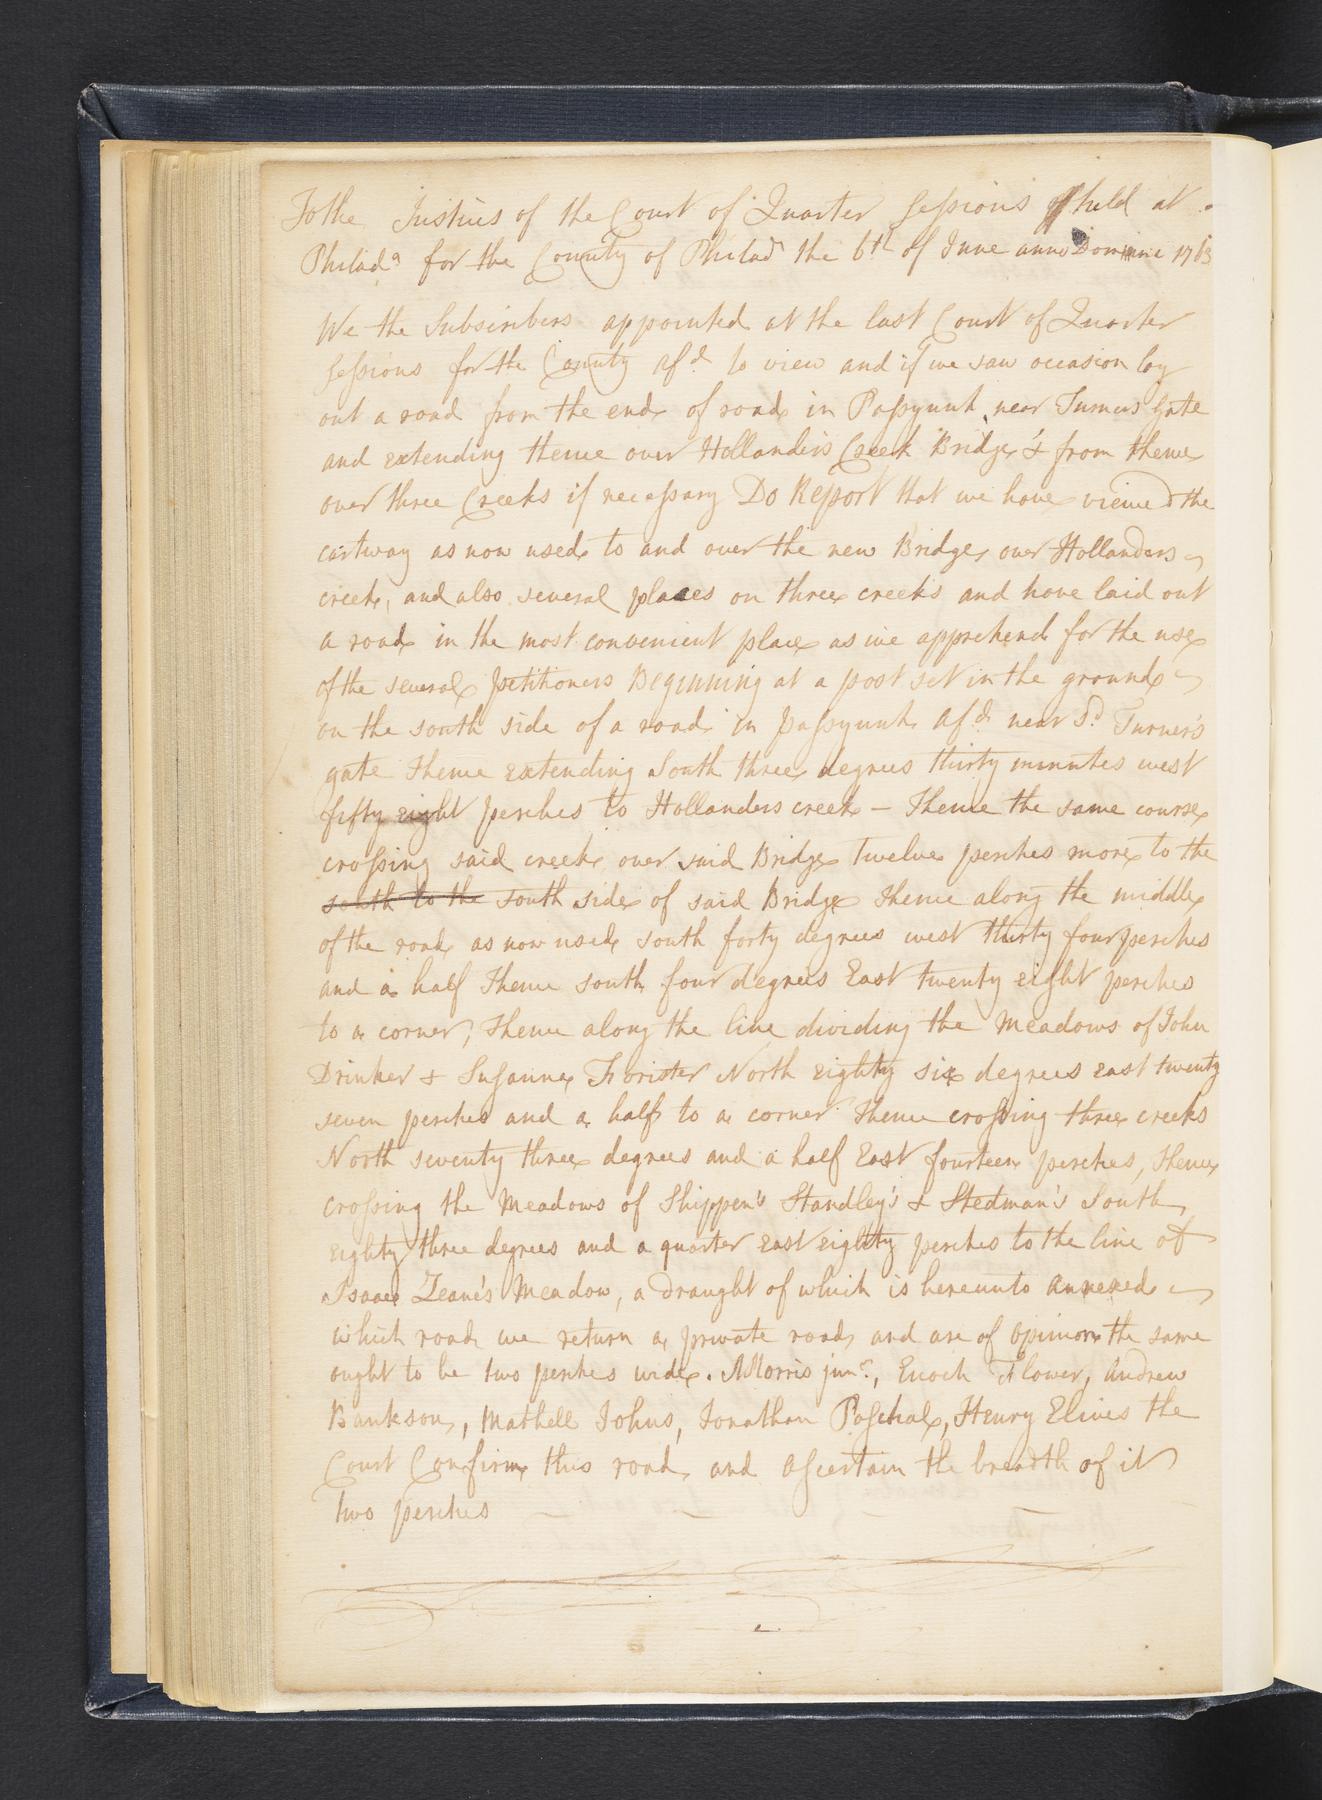 To the Justices of the Court of Quarter Sessions held at
Philada for the County of Philada the 6th of June anno Domini 1763
We the Subscribers appointed at the last Court of Quarter
Sessions for the County afd to view and if we saw occasion lay
out a road from the end of road in Passyunk near Turners Gate
and extending thence over Hollander's Creek Bridge & from thence
over three Creeks if necessary Do Report that we have viewed the
cartway as now used to and over the new Bridge over Hollanders
creek, and also several places on three creeks and have laid out
a road in the most convenient place as we apprehend for the use
of the several petitioners Beginning at a post set in the ground
on the south side of a road in passyunk afd near Sd Turner's
gate Thence extending South three degrees thirty minutes west
fifty eight perches to Hollanders creek – Thence the same course
crossing said creek over said Bridge twelve perches more to the
south to the south side of said Bridge Thence along the middle
of the road as now used south forty degrees west thirty four perches
and a half Thence south four degrees East twenty eight perches
to a corner, Thence along the line dividing the Meadows of John
Drinker & Susanna Forister North eighty six degrees east twenty
seven perches and a half to a corner Thence crossing three creeks
North seventy three degrees and a half East fourteen perches, Thence
crossing the Meadows of Shippen's Standley's & Stedman's South
eighty three degrees and a quarter east eighty perches to the line of
Isaac Zeane's Meadow, a draught of which is hereunto annexed
which road we return a private road and are of opinion the same
ought to be two perches wide. AMorris junr, Enoch Flower, Andrew
Bankson, Mathell Johns, Jonathan Paschal, Henry Elives the
Court Confirm this road and ascertain the breadth of it
two perches